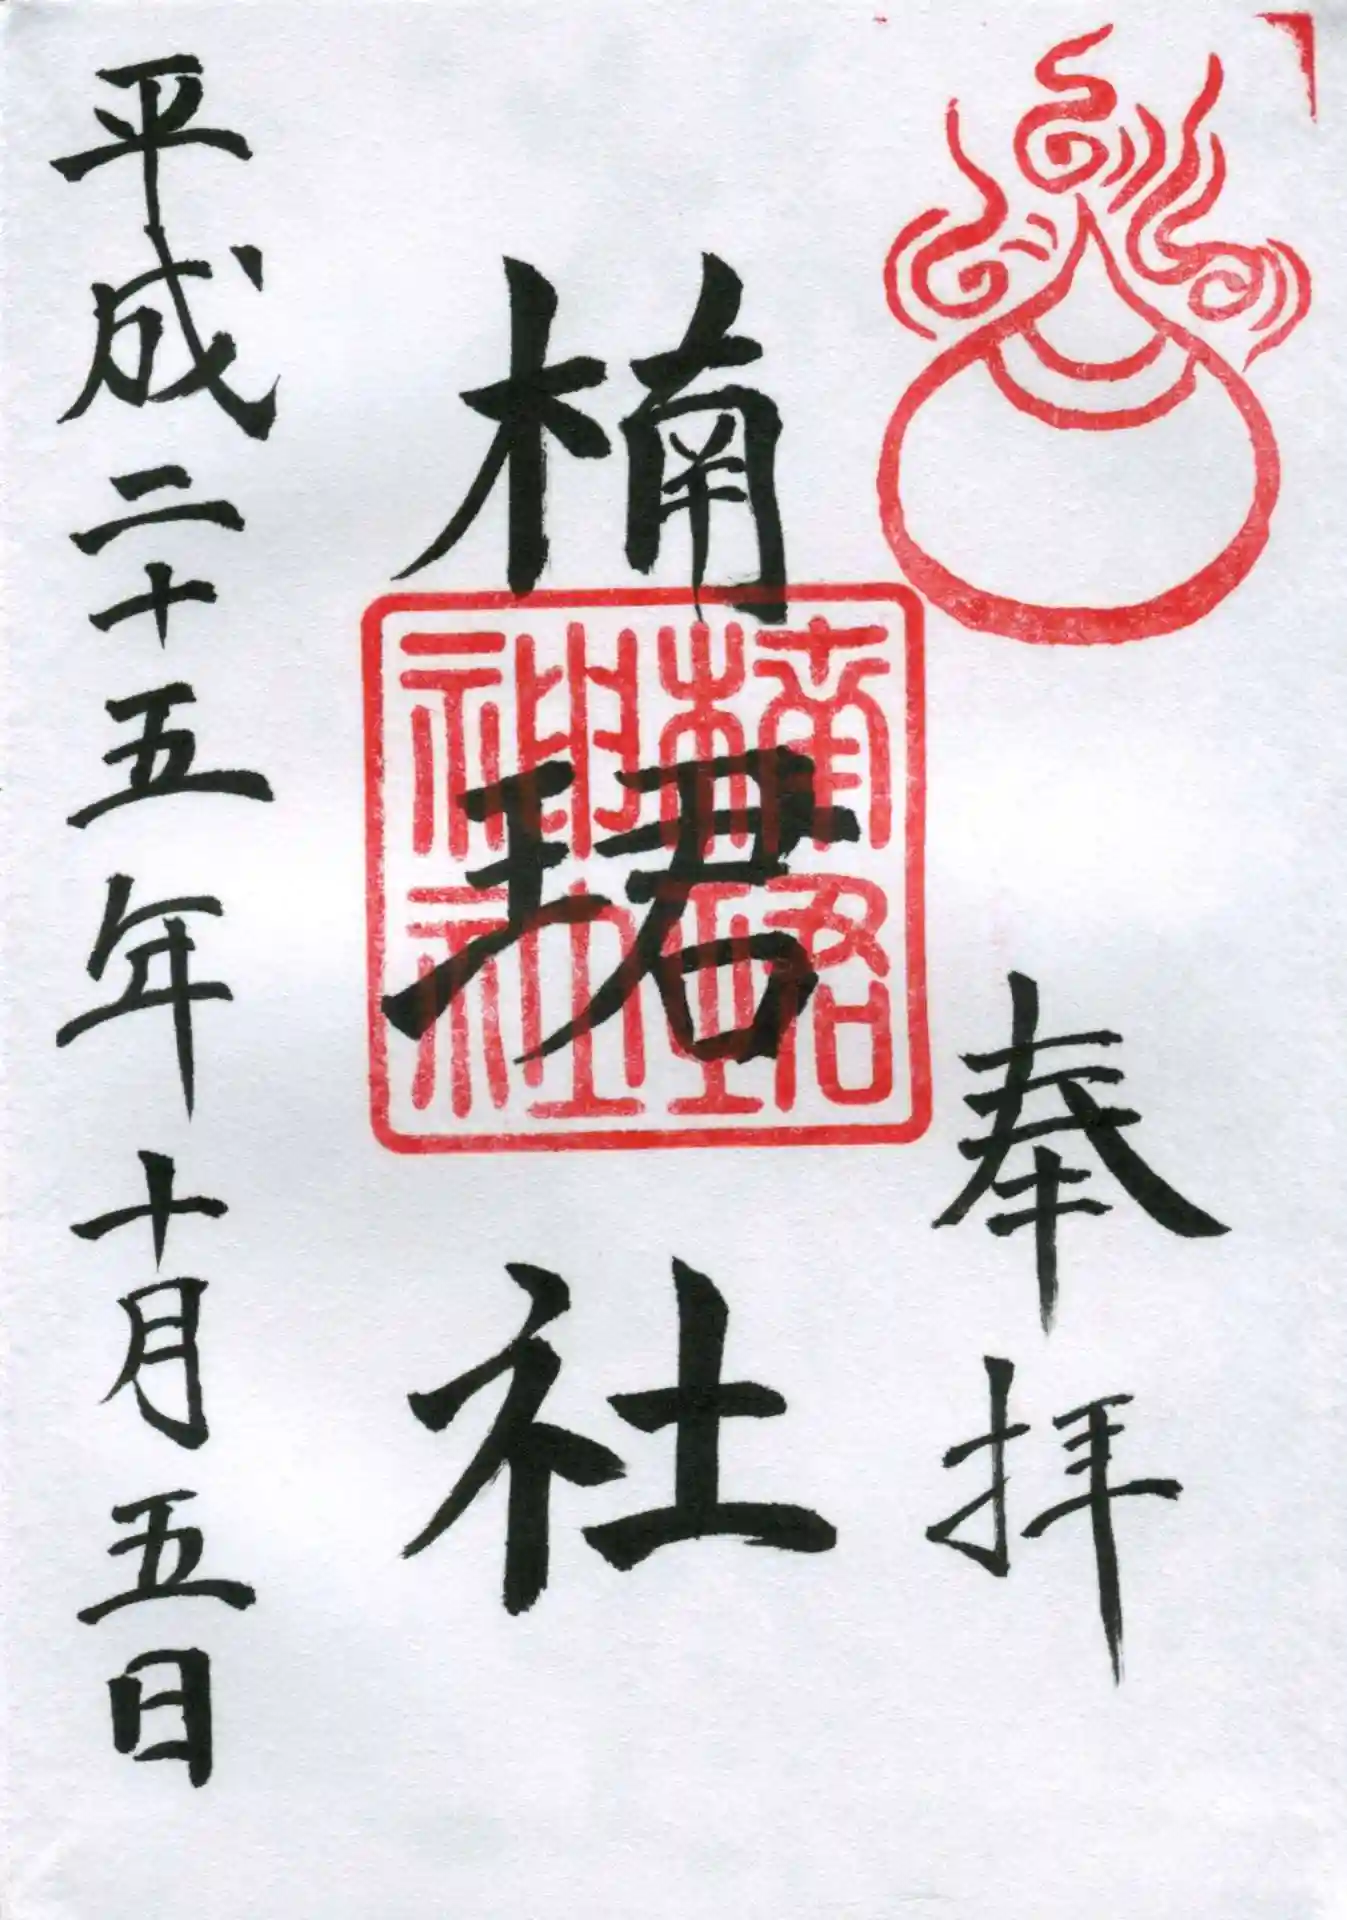 奉拝
楠珺社
楠珺
神社
平成二十五年十月五日